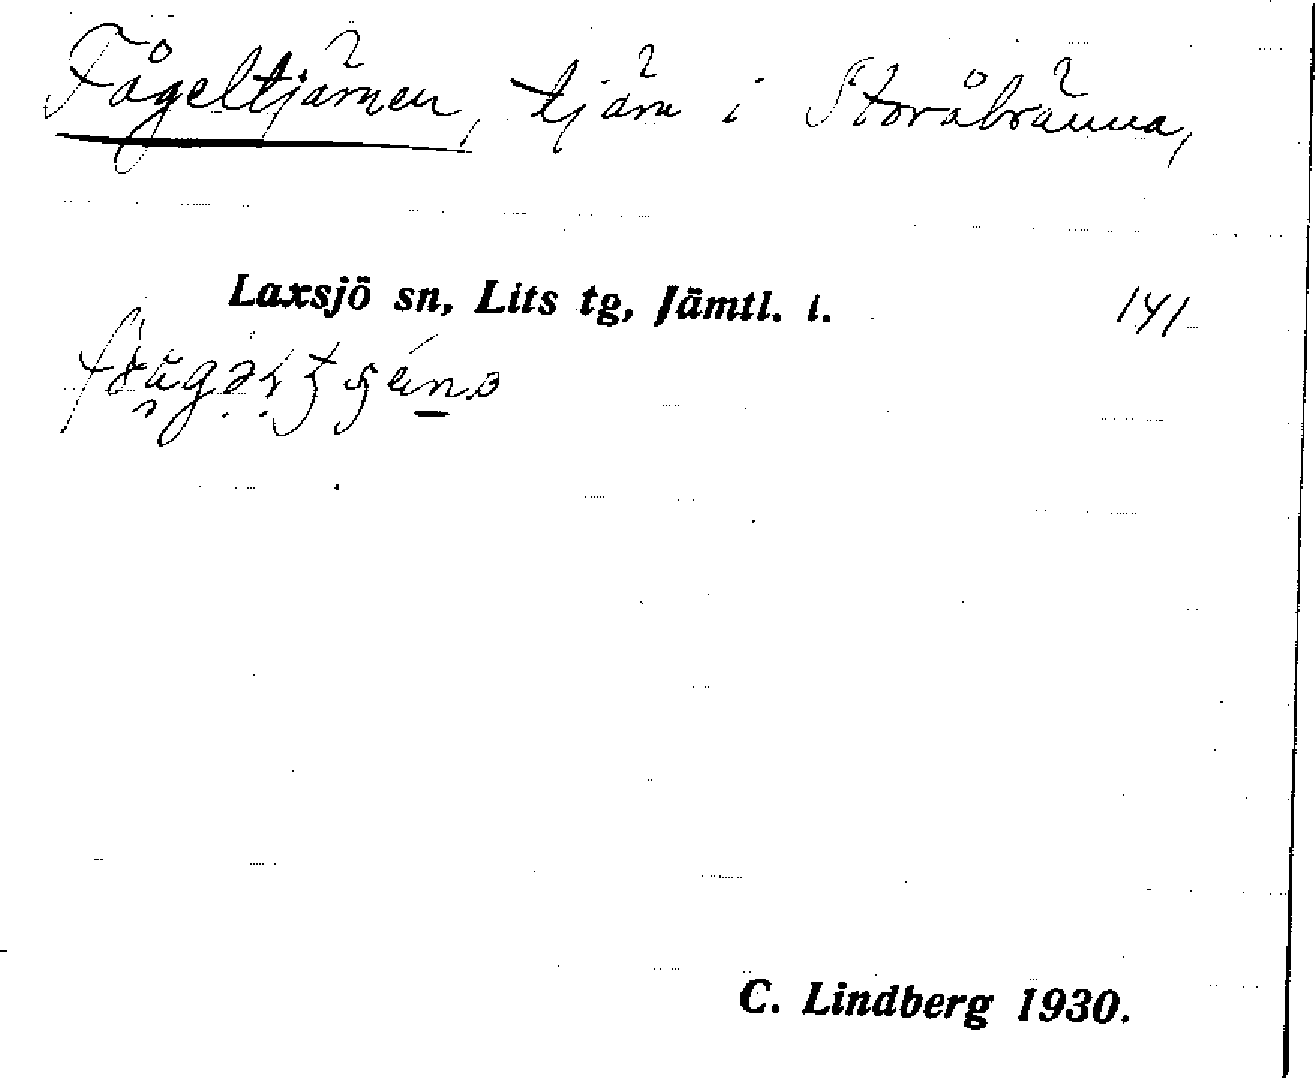 Fågeltjärnen, tjärn i Storåbränna,
Laxsjö sn, Lits tg, Jämtl. l.
141
C. Lindberg 1930.